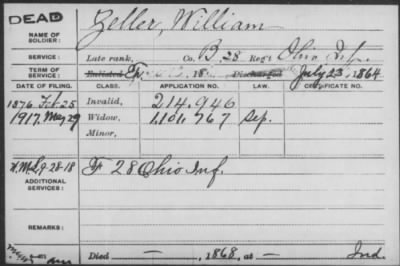 DEAD
Zeller, William
NAME OF SOLDIER:
SERVICE: Late rank, Co. B, 28 Reg't Ohio Inf.
TERM OF SERVICE: Enlisted 18 Discharged July 23, 1864
DATE OF FILING. CLASS. APPLICATION NO. LAW. CERTIFICATE NO.
1876. Feb. 25 Invalid, 214.946
1917. May 29 Widow, 1,101,767 Sep.
Minor,
9-28-18 F 28 Ohio Inf.
ADDITIONAL SERVICES:
REMARKS:
Died — , 1868, at — Ind.